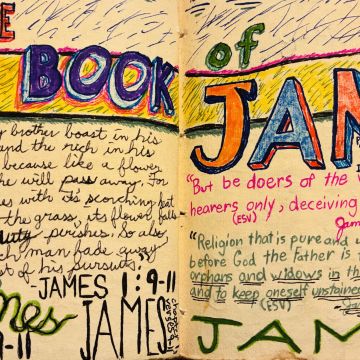 E
BOOK
y brother boast in his
and the rich in his
because like a flower
he will pass away. For
es with its scorching heat
the grass, its flower falls
uty perishes. So also
ch man fade away
st of his pursuits."
JAMES 1:9-11
mes
JAMES
9-11
of
JAM
"But be doers of the
hearers only, deceiving
(ESV)
Jam
"Religion that is pure and u
before God the father is th
orphans and widows in th
and to keep oneself unstained
(ESV)
JAM